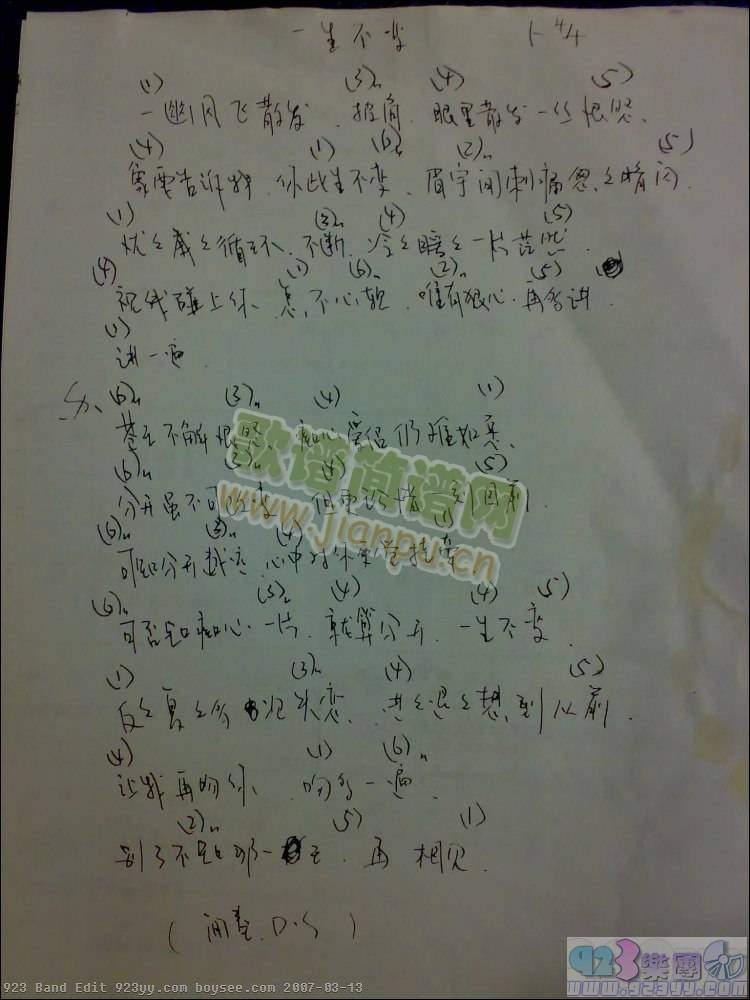 一生不变 1- 4/4
(1) (3)m (4) (5)
一幽风飞散发 披肩 眼里散发一丝恨怨、
(4) (1) (6)m (2)m (5)
象要告诉我 你此生不变、眉宇间刺痛忽々暗闪.
(1) (3)m (4) (5)
忧々戚々循环 不断、冷々暖々一片茫然.
(4) (1) (6)m (2)m (5)
视线碰上你 怎不心软 唯有狠心 再多讲.
(1)
讲一遍
(6)m (3)m (4) (1)
苍天不解恨怨、痴心 仍难如愿、
(6)m (3)m (4) (5)
分开虽不可改变 但更 目前.
(6)m (3)m (4) (1)
可知分开越 心中对你更牵
(6)m (3)m (4) (4) (5)
可否知痴心一片、就算分开、一生不变
(1) (3)m (4) (5)
反々复々多次失恋、进々退々想到从前.
(4) (1) (6)m
让我再吻你 吻多一遍.
(2)m (5) (1)
别了不知哪一天、再 相见.
(间奏、D·S)
歌谱简谱网
www.jianpu.cn
923 Band Edit 923yy.com boysee.com 2007-03-13
923樂團
www.923yy.com